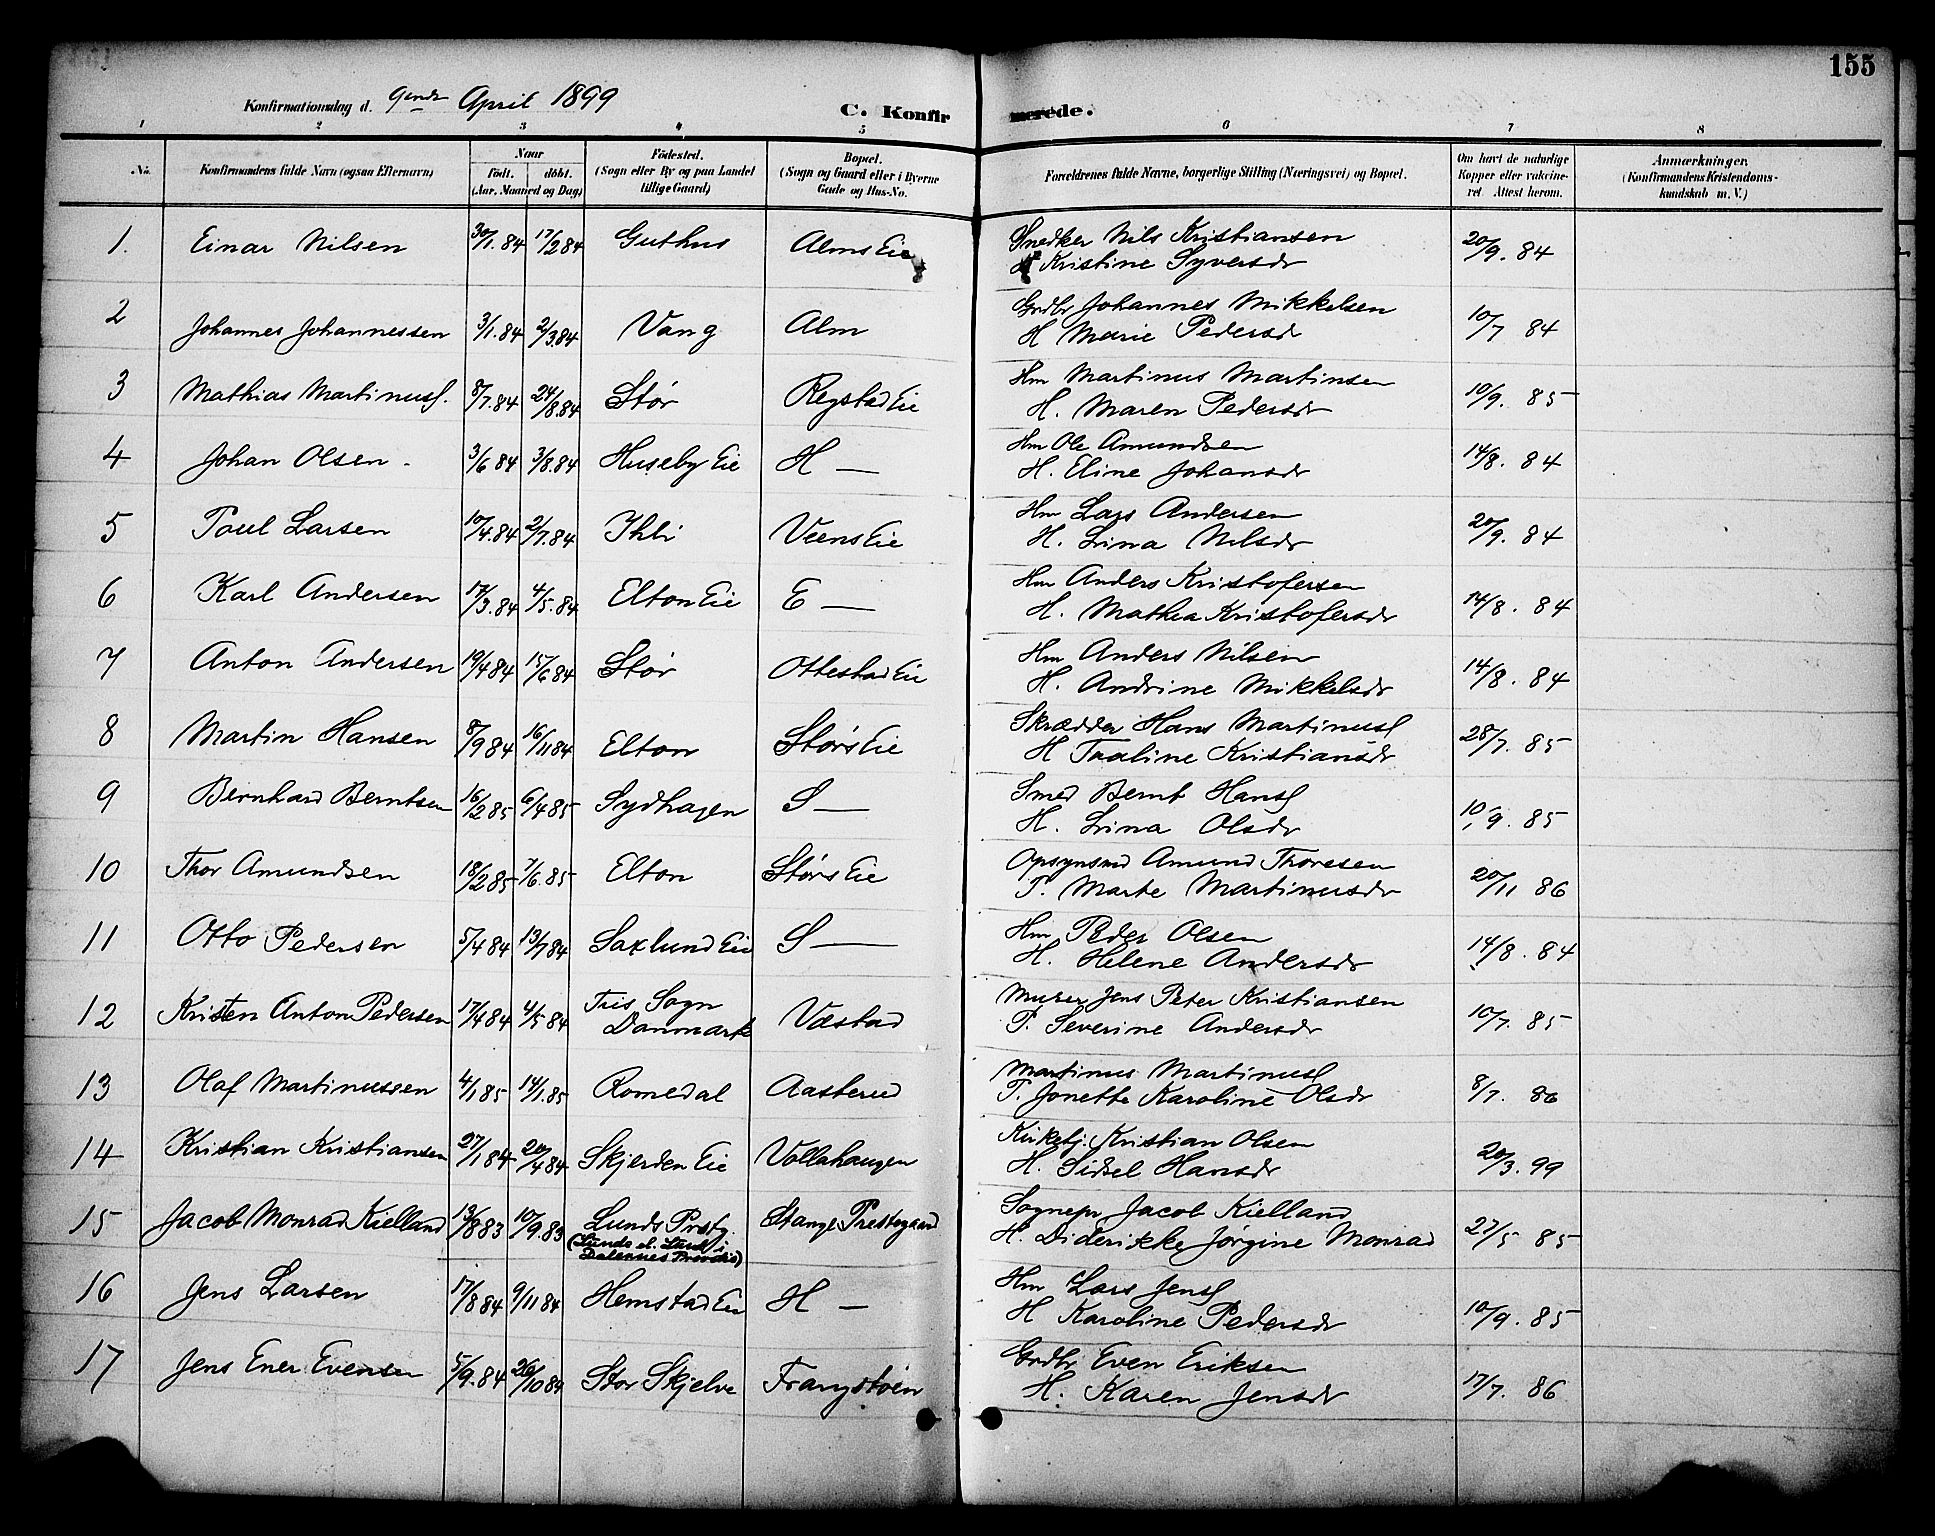 155
Konfirmationsdag d. 9ende April 1899
C. Konfirmerede.
1 2 3 4 5 6 7 8
No. Konfirmandens fulde Navn (ogsaa Efternavn) Naar födt. döbt. (Aar, Maaned og Dag) Födested. (Sogn eller By og paa Landet tillige Gaard) Bopæl. (Sogn og Gaard eller i Byerne Gade og Hus-No. Forældrenes fulde Navne, borgerlige Stilling (Næringsvei) og Bopæl. Om havt de naturlige Kopper eller vaccineret. Attest herom. Anmærkninger. (Konfirmandens Kristendomskundskab m. V.)
1. Einar Nilsen 30/1.84 17/2 84 Guthus Alms Eie Snedker Nils Kristiansen 20/9. 84
Kristine Syversdr
2 Johannes Johannessen 3/1.84 2/3 84 Vang Alm Grdbr Johannes Mikkelsen 10/7 84
H Marie Pedersdr
3 Mathias Martinuss. 8/7.84 24/8 84 Stör Regstad Eie Hm Martinus Martinsen 10/9. 85
H. Maren Pedersdr
4 Johan Olsen. 3/6 84 3/8.84 Huseby Eie H — Hm Ole Amundsen 14/8. 84
H. Eline Johansdr
5 Poul Larsen 10/4.84 2/7.84 Ihli Veens Eie Hm Lars Andersen 20/9. 84
H. Lina Nilsdr
6 Karl Andersen 17/3.84 4/5.84 Elton Eie E — Hm Anders Kristofersen 14/8. 84
H. Mathea Kristofersdr
7 Anton Andersen 19/4 84 15/6 84 Stör Ottestad Eie Hm Anders Nilsen 14/8. 84
H. Andrine Mikkelsdr
8 Martin Hansen 8/9 84 16/11 84 Elton Störs Eie Skrædder Hans Martinuss 28/7. 85
H Taaline Kristiansdr
9 Bernhard Berntsen 16/2 85 6/4 85 Sydhagen S — Smed Bernt Hanss 10/9. 85
H. Lina Olsdr
10 Thor Amundsen 18/2 85 7/6.85 Elton Störs Eie Opsynsmd Amund Thoresen 20/11 86
P. Marte Martinusdr
11 Otto Pedersen 5/4 84 13/7 84 Saxlund Eie S — Hm Peder Olsen 14/8. 84
H. Helene Andersdr
12 Kristen Anton Pedersen 17/4 84 4/5 84 Tris Sogn Danmark Væstad Murer Jens Peter Kristiansen 10/7. 85
P. Severine Andersdr
13 Olaf Martinussen 4/1 85 14/1.85 Romedal Aasterud Martinus Martinuss 8/7. 86
P. Jonette Karoline Olsdr
14 Kristian Kristiansen 27/1 84 20/4 84 Skjerden Eie Vollahaugen Kirketj. Kristian Olsen 20/3. 99
H. Sidsel Hansdr
15 Jacob Monrad Kielland 13/8 83 10/9.83 Lunds Prstg. Stange Prestegaard Sognepr Jacob Kielland 27/5 85
(Lunds el. Lund i Dalernes Provsti) H. Diderikke Jörgine Monrad
16 Jens Larsen 17/8 84 9/11 84 Hemstad Eie H — Hm Lars Jenss 10/9. 85
H Karoline Pedersdr
17 Jens Ener Evensen 5/9.84 26/10 84 Stor Skjelve Frangstöen Grdbr Even Eriksen 17/7. 86
H. Karen Jensdr